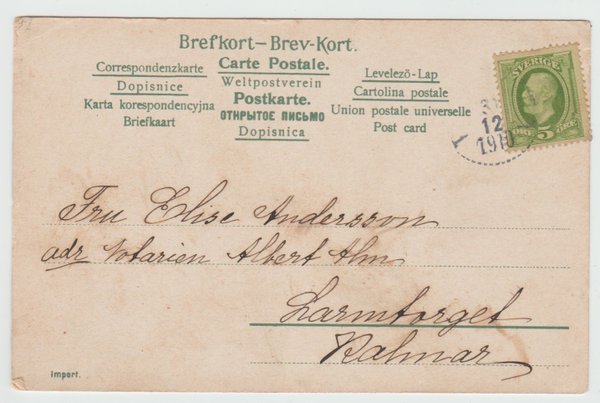 Brefkort—Brev-Kort.
Correspondenzkarte
Dopisnice
Karta korespondencyjna
Briefkaart
Carte Postale.
Weltpostverein
Postkarte.
ОТКРЫТОЕ ПИСЬМО
Dopisnica
Levelezö-Lap
Cartolina postale
Union postale universelle
Post card
SVERIGE
5
ÖRE
12
Fru Elise Andersson
adr Notarien Albert Alm
Larmtorget
Kalmar
Import.